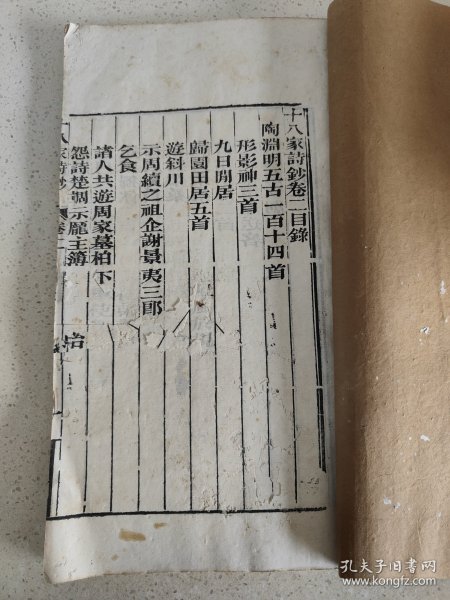 十八家詩鈔卷二目錄
陶淵明五古一百十四首
形影神三首
九日閒居
歸園田居五首
遊斜川
示周續之祖企謝景夷三郎
乞食
諸人共遊周家墓柏下
怨詩楚調示龐主簿
八家詩鈔
卷二
孔夫子旧书网
www.kongfz.com